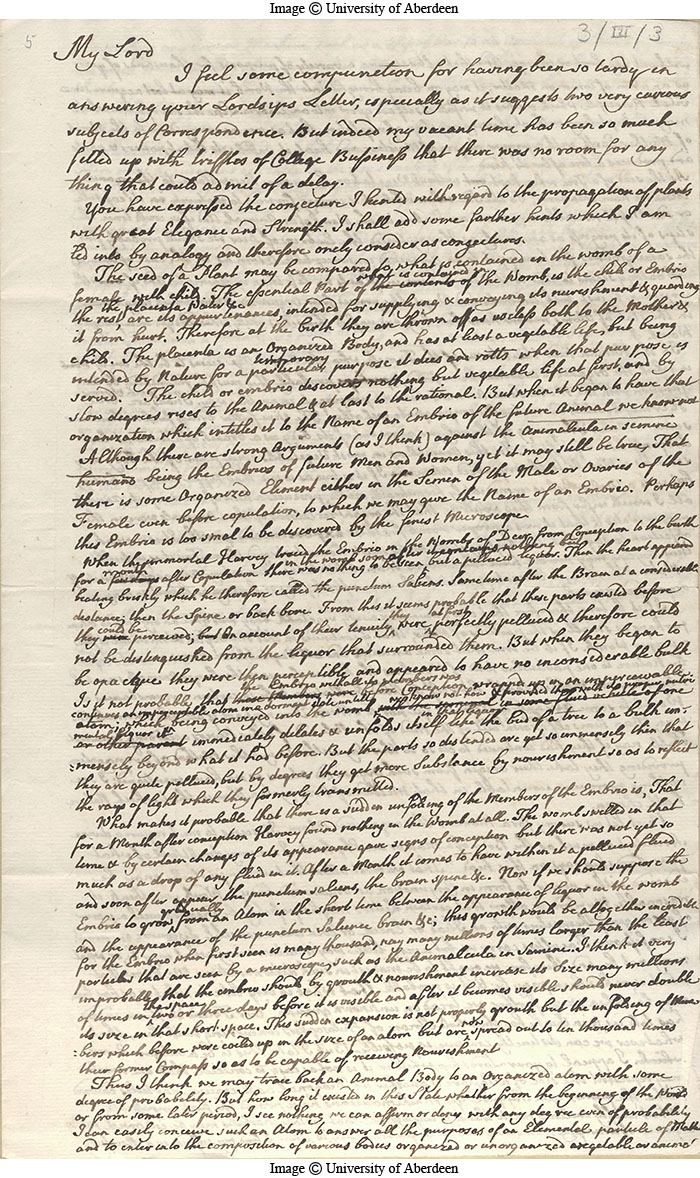 Image © University of Aberdeen
5
3/III/3
My Lord
I feel some compunction for having been so tardy in
answering your Lordsips Letter, especially as it suggests two very curious
subjects of Correspondence. But indeed my vacant time has been so much
filled up with triffles of College Bussiness that there was no room for any
thing that could admit of a delay.
You have expressed the conjecture I hinted with regard to the propagation of plants
with great Elegance and Strength. I shall add some farther hints which I am
led into by analogy and therefore onely consider as conjectures.
The seed of a Plant may be compared to what is contained in the womb of a
female with child. The essential Part of what is contained the contents of the Womb, is the child or Embrio
the rest, the placenta Waters &c are its appurtenances, intended for supplying & conveying its nureshment & guarding
it from hurt. Therefore at the birth they are thrown off as useless both to the Mother &
child. The placenta is an Organized Body, and has at least a vegetable life, but being
intended by Nature for a particular temporary purpose it dies and rotts when that purpose is
served. The child or embrio discovers nothing but vegetable life at first, and by
slow degrees rises to the Animal & at last to the rational. But when it began to have that
organization which intitles it to the Name of an Embrio of the future Animal we know not
Although there are strong Arguments (as I think) against the Animalcula in semine
humano being the Embrios of future Men and Women, yet it may still be true, That
there is some Organized Element either in the Semen of the Male or Ovaries of the
Female even before copulation, to which we may give the Name of an Embrio. Perhaps
this Embrio is too smal to be discovered by the finest Microscope.
When the immortal Harvey traced the Embrio in the Wombs of Deer from Conception to the birth
for a month after Copulation there was nothing to be seen but a pellucid liquor. Then the heart appeard
beating briskly which he therefore called the punctum Saliens. Some time after the Brain at a considerable
distance; then the Spine or back bone. From this it seems probable that these parts existed before
they could be perceived; but on account of their tenuity they were at first perfectly pellucid & therefore could
not be distinguished from the liquor that surrounded them. But when they began to
be opactque they were then perceptible and appeared to have no inconsiderable bulk
Is it not probable, that the Embrio with all its members was before Conception wrapped up in an unperceivable
atom; which being conveyed into the womb
or other parent immediately delates & unfolds itself like the bud of a tree to a bulk im-
mensely beyond what it had before. But the parts so distended are yet so immensely thin that
they are quite pellucid, but by degrees they get more Substance by nourishment so as to reflect
the rays of light which they formerly transmitted.
What makes it probable that there is a sudden unfolding of the Members of the Embrio is, That
for a Month after conception Harvey found nothing in the Womb at all. The womb swelled in that
time & by certain changes of its appearance gave signs of conception but there was not yet so
much as a drop of any fluid in it. After a Month it comes to have within it a pellucid fluid
and soon after appear, the punctum saliens, the brain spine &c. Now if we should suppose the
Embrio to grow gradually from an Atom in the short time between the appearance of liquor in the womb
and the appearance of the punctum Saliens brain &c; this growth would be altogether incredible
for the Embrio when first seen is many thousand, nay many millions of times larger than the least
particles that are seen by a microscope, such as the Animalcula in Semine. I think it very
improbable that the embrio should by growth & nourishment increase its size many millions
of times in the space two or three days before it is visible and after it becomes visible should never double
its size in that short space. This sudden expansion is not properly growth but the unfolding of Mem-
bers which before were coiled up in the size of an atom but are now spread out to ten thousand times
their former Compass so as to be capable of receiving Nourishment
Thus I think we may trace back an Animal Body to an Organized atom with some
degree of probability. But how long it existed in this State whether from the beginning of the World
or from some later period, I see nothing we can affirm or deny with any degree even of probability
I can easily conceive such an Atom to answer all the purposes of an Elemental particle of Matter
and to enter into the composition of various bodies organized or unorganized vegetable or animal
Image © University of Aberdeen